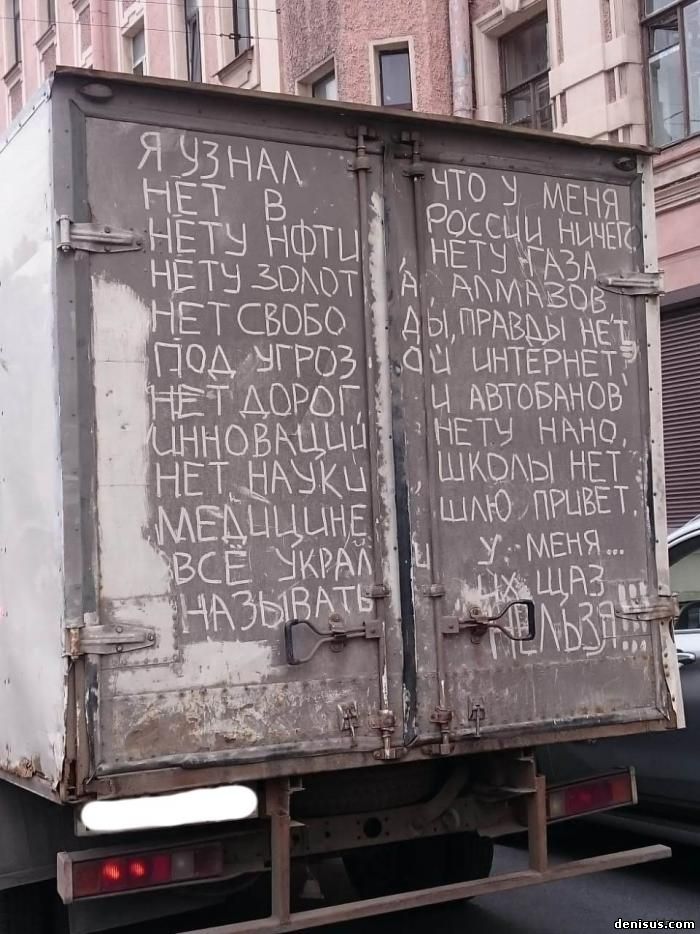 Я УЗНАЛ ЧТО У МЕНЯ
НЕТ В РОССИИ НИЧЕГО
НЕТУ НФТИ НЕТУ ГАЗА
НЕТУ ЗОЛОТ А АЛМАЗОВ
НЕТ СВОБО ДЫ, ПРАВДЫ НЕТ
ПОД УГРОЗ ОЙ ИНТЕРНЕТ
НЕТ ДОРОГ, И АВТОБАНОВ
ИННОВАЦИЙ НЕТУ НАНО,
НЕТ НАУКИ, ШКОЛЫ НЕТ
МЕДИЦИНЕ ШЛЮ ПРИВЕТ.
ВСЁ УКРАЛ И У МЕНЯ...
НАЗЫВАТЬ ИХ ЩАЗ
НЕЛЬЗЯ!!!
denisus.com